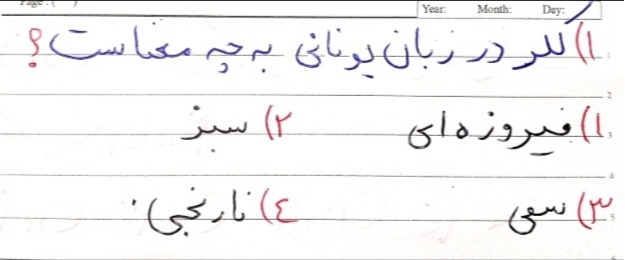 Page: ( ) Year: Month: Day:
۱) کلر در زبان یونانی به چه معناست؟
۱) فیروزه ای ۲) سبز
۳) سمی ۴) نارنجی.